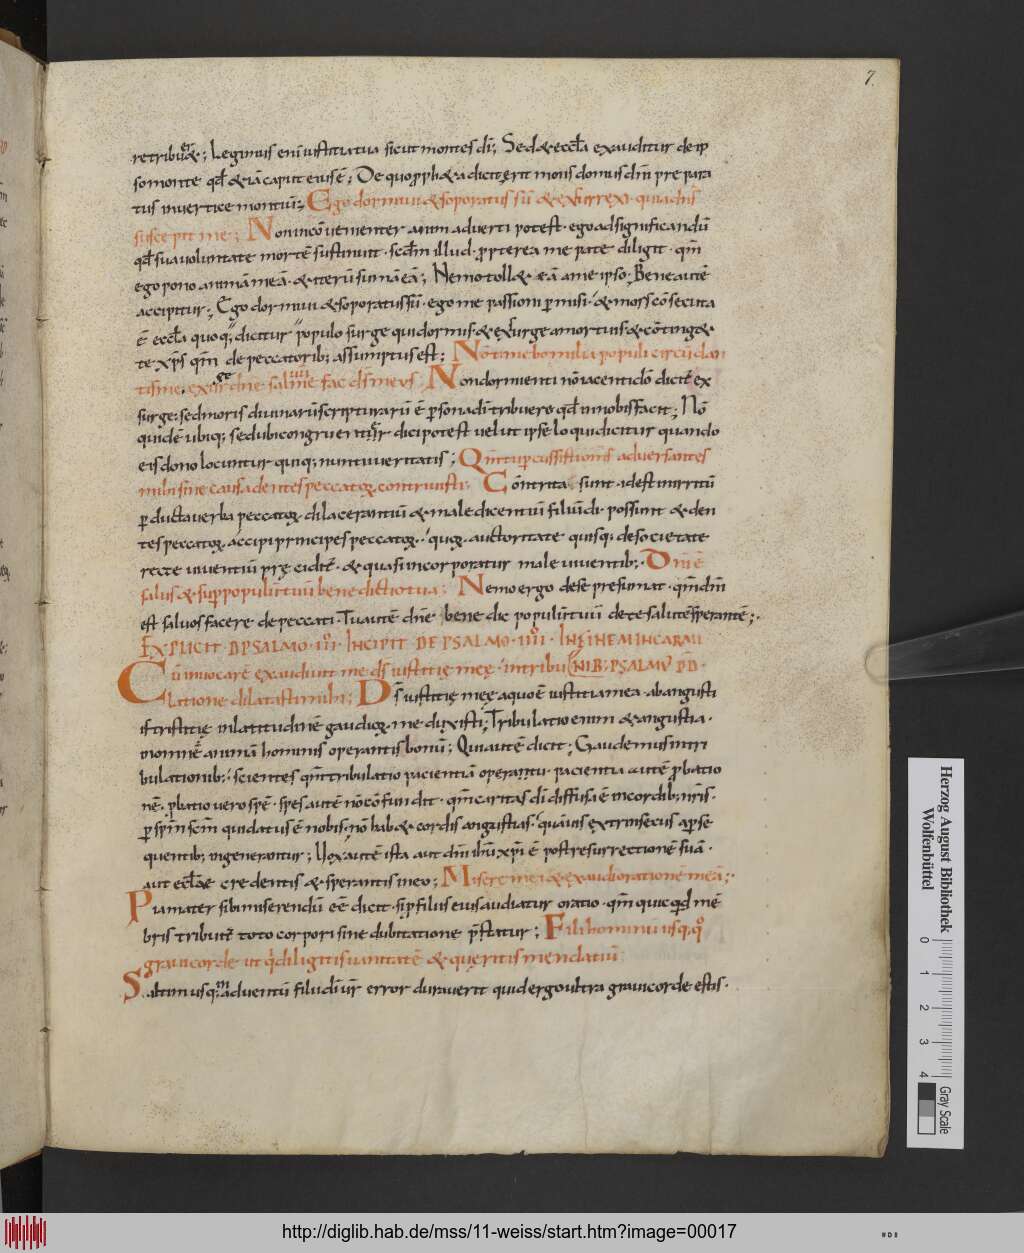 7
retribu&; Legimus enī iustitia tua sicut montes dī; Sed & eccła exauditur de ip
so monte qđ & iā caput eius ē; De quo proph&a dicit erit mons domus dn̄i prepara
tus in uertice montiū; Ego dormiui & soporatus sū & exsurrexi quia dn̄s
suscepit me; Non incōuenienter animaduerti potest ego ad significandū
qđ sua uoluntate mortē sustinuit scdm̄ illud propterea me pater diligit qm̄
ego pono animā meā & iterū sumā eā; Nemo toll& eā a me ipso; Bene autē
accipitur; Ego dormiui & soporatus sū ego me passioni permisi & mors cōsecuta
ē eccła quoq; dicitur populo surge qui dormis & exsurge a mortuis & cōting&
te xp̄s qm̄ de peccatorib; assumptus est; Nō timebo milia populi circūdan
tis me exsurge dn̄e saluū me fac ds̄ meus; Non dormienti nō iacenti dō dicit ex
surge; sed moris diuinarū scripturarū ē personā dī tribuere qđ in nobis facit; Nō
quidē ubiq; sed ubi congruenter dici potest uelut ipse loqui dicitur quando
eis dono locuntur quiq; nuntii ueritatis; Qm̄ tu percussisti oms̄ aduersantes
mihi sine causa dentes peccatoꝝ contriuisti; Cōntrita sunt id est in irritū
perducta uerba peccatoꝝ dilacerantiū & maledicentiū filiū dī possunt & den
tes peccatoꝝ accipi principes peccatoꝝ quoꝝ auctoritate quisq; de societate
recte uiuentiū prę cidit & quasi incorporatur male uiuentib; Dn̄i ē
salus & sup populū tuū benedictio tua; Nemo ergo de se presumat qm̄ dn̄i
est saluos facere de peccati Tu autē dn̄e benedic populū tuū de te salutē sperantē;
EXPLICIT DE PSALMO III INCIPIT DE PSALMO IIII IN FINEM IN CARMI
Cū inuocarē exaudiuit me ds̄ iustitię meę in tribu NIB; PSALMV̄ DD
latione dilatasti mihi; Ds̄ iustitię meę a quo ē iustitia mea ab angusti
is tristitię in latitudinē gaudioꝝ me duxisti; Tribulatio enim & angustia
in omnē animā hominis operantis bonū; Qui autē dicit; Gaudemus in tri
bulationib; scientes qm̄ tribulatio pacientiā operantur pacientia autē probatio
nē probatio uero spē spes autē nō cōfundit qm̄ caritas dī diffusa ē in cordib; nr̄is
per spm̄ scm̄ qui datus ē nobis nō hab& cordis angustias quāuis extrinsecus a perse
quentib; ingenerantur; Uox autē ista aut dn̄i ihū xp̄i ē post resurrectionē suā
aut eccłae credentis & sperantis in eo; Miserere mei & exaudi orationē meā;
Pia mater sibi miserendū eē dicit si per filius eius audiatur oratio qm̄ quicquid mē
bris tribuit toto corpori sine dubitatione prestatur; Filii hominū usq; quo
graui corde ut quid diligitis uanitatē & queritis mendatiū
Saltim usq; ad aduentū filii dī ur̄ error durauerit quid ergo ultra graui corde estis
Herzog August Bibliothek
Wolfenbüttel
0 1 2 3 4
Gray Scale
http://diglib.hab.de/mss/11-weiss/start.htm?image=00017